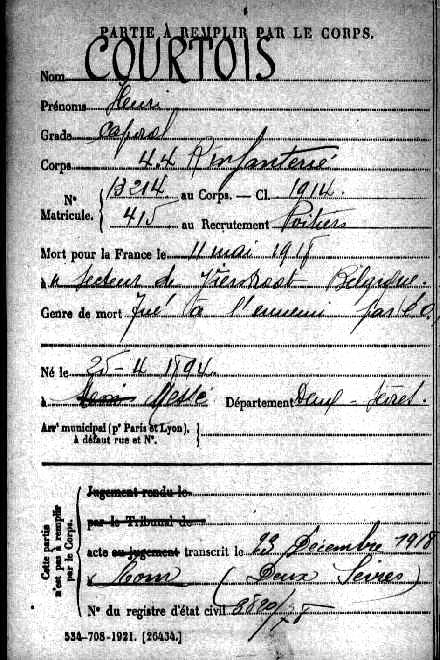 PARTIE À REMPLIR PAR LE CORPS.
Nom COURTOIS
Prénoms Henri
Grade Caporal
Corps 44 R Infanterie
N° Matricule. { 13214 au Corps. — Cl. 1914.
415 au Recrutement Poitiers
Mort pour la France le 11 mai 1918
à secteur de Vierstraat Belgique.
Genre de mort Tué à l'ennemi par é.o.
Né le 25-4 1894
à Messé Département Deux-Sèvres.
Arrt municipal (pr Paris et Lyon).
À défaut rue et N°.
Cette partie n'est pas à remplir par le Corps.
Jugement rendu le
par le Tribunal de
acte ou jugement transcrit le 23 Décembre 1918
à Rom (Deux Sèvres)
N° du registre d'état civil
534-708-1921. [26434.]